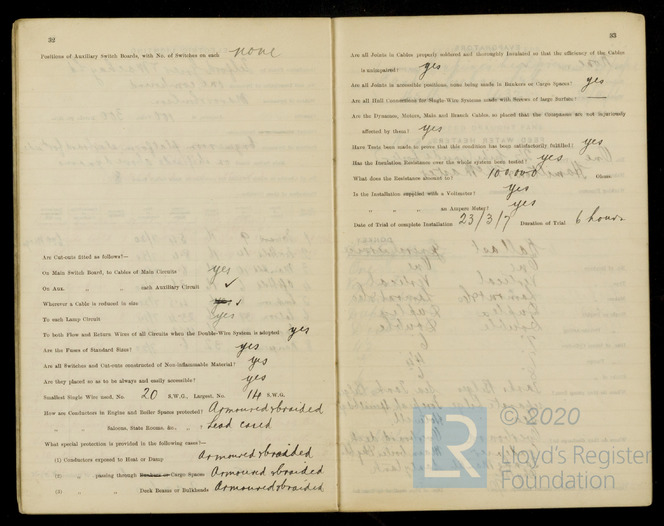 32
Positions of Auxiliary Switch Boards, with No. of Switches on each none
Are Cut-outs fitted as follows?—
On Main Switch Board, to Cables of Main Circuits yes
On Aux. " " each Auxiliary Circuit ✓
Wherever a Cable is reduced in size ✓
To each Lamp Circuit yes
To both Flow and Return Wires of all Circuits when the Double-Wire System is adopted yes
Are the Fuses of Standard Sizes? yes
Are all Switches and Cut-outs constructed of Non-inflammable Material? yes
Are they placed so as to be always and easily accessible? yes
Smallest Single Wire used, No. 20 S.W.G., Largest, No. 14 S.W.G.
How are Conductors in Engine and Boiler Spaces protected? Armoured & braided
" " Saloons, State Rooms, &c., " " Lead cased
What special protection is provided in the following cases?—
(1) Conductors exposed to Heat or Damp Armoured & braided
(2) " passing through Bunkers or Cargo Spaces Armoured & braided
(3) " " Deck Beams or Bulkheads Armoured & braided
33
Are all Joints in Cables properly soldered and thoroughly Insulated so that the efficiency of the Cables
is unimpaired? yes
Are all Joints in accessible positions, none being made in Bunkers or Cargo Spaces? yes
Are all Hull Connections for Single-Wire Systems made with Screws of large Surface? —
Are the Dynamos, Motors, Main and Branch Cables, so placed that the Compasses are not injuriously
affected by them? yes
Have Tests been made to prove that this condition has been satisfactorily fulfilled? yes
Has the Insulation Resistance over the whole system been tested? yes
What does the Resistance amount to? 100000 Ohms
Is the Installation supplied with a Voltmeter? yes
" " " an Ampere Meter? yes
Date of Trial of complete Installation 23/3/7 Duration of Trial 6 hours
LR © 2020
Lloyd's Register
Foundation